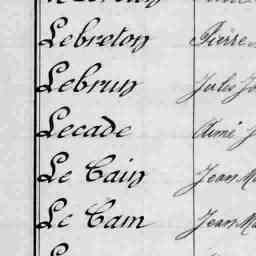 Lebreton Pierre
Lebrun Jules
Lecade Aimé
Le Cain Jean
Le Cam Jean